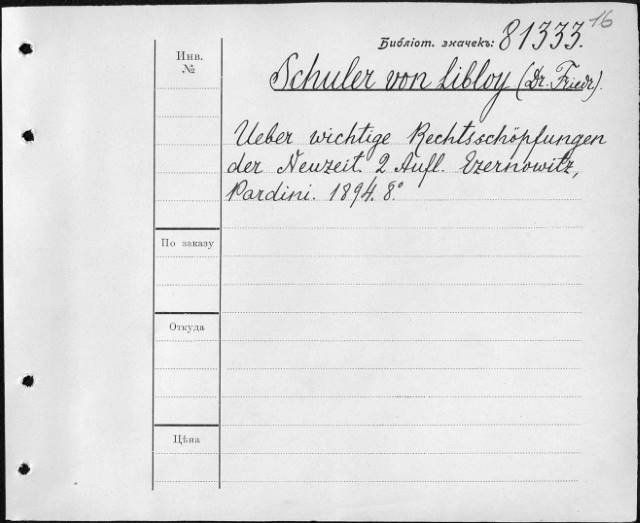 16
Библіот. значекъ: 81333.
Инв.
№
Schuler von Libloy (Dr. Friedr).
Ueber wichtige Rechtsschöpfungen
der Neuzeit. 2 Aufl. Czernowitz,
Pardini. 1894. 8°
По заказу
Откуда
Цѣна